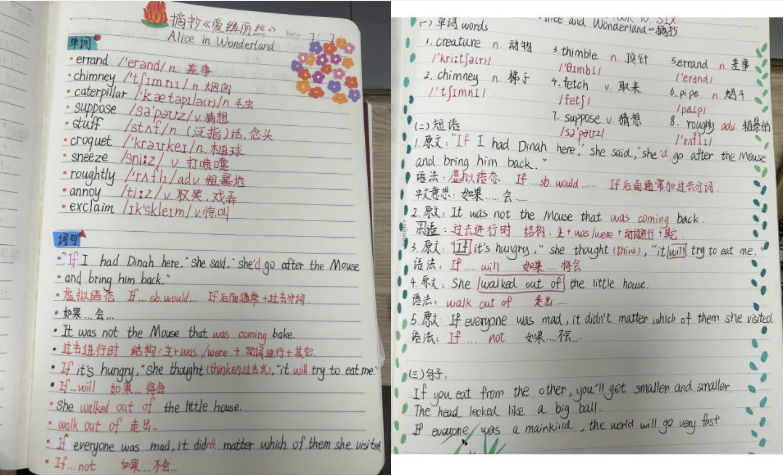 摘抄《爱丽丝》
Alice in Wonderland
单词
errand /'erənd/n 差事
chimney /'tʃɪmnɪ/n 烟囱
caterpillar /'kætəpɪlə(r)/n 毛虫
suppose /sə'pəʊz/v 猜想
stuff /stʌf/n (泛指)话,念头
croquet /'krəʊkeɪ/n 槌球
sneeze /sniːz/ v 打喷嚏
roughtly /'rʌflɪ/adv 粗暴地
annoy /tiːz/v 取笑,戏弄
exclaim /ɪk'skleɪm/v 惊叫
词句
"If I had Dinah here," she said, "she'd go after the Mouse
and bring him back."
虚拟语态 If...sb.would... If后面通常+过去分词.
如果...会...
It was not the Mouse that was coming bake.
过去进行时 结构:主+was/were + 动词进行+其它.
If it's hungry,"she thought (think的过去式),"it will try to eat me"
If...will 如果...将会
She walked out of the little house.
walk out of 走出...
If everyone was mad, it didn't matter which of them she visited
If...not 如果...不会...
(一) 单词 words
Alice and Wonderland 摘抄
1. creature n. 动物
/'kriːtʃə(r)/
2. chimney n. 梯子
/'tʃɪmnɪ/
3. thimble n. 顶针
/'θɪmbl/
4. fetch v. 取来
/fetʃ/
7. suppose v. 猜想
/sə'pəʊz/
5 errand n. 差事
/'erənd/
6. pipe n. 烟斗
/paɪp/
8. roughly adv. 粗暴的
/'rʌflɪ/
(二) 短语
1. 原文: "If I had Dinah here," she said, "she'd go after the Mouse
and bring him back."
语法: 虚拟语态 If sb. would..... If后面通常加过去分词.
大意思: 如果....会....
2. 原文: It was not the Mouse that was coming back.
过去进行时 结构: 主+was/were+动词进行+其它.
3. 原文: "If it's hungry," she thought (think), "it will try to eat me."
语法: If .... will 如果....将会
4. 原文: She walked out of the little house.
语法: walk out of 走出...
5. 原文: If everyone was mad, it didn't matter which of them she visited.
语法: If .... not 如果...不会...
(三) 句子.
If you eat from the other, you'll get smaller and smaller.
The head looked like a big ball.
If everyone was a mainkind, the world will go very fast.